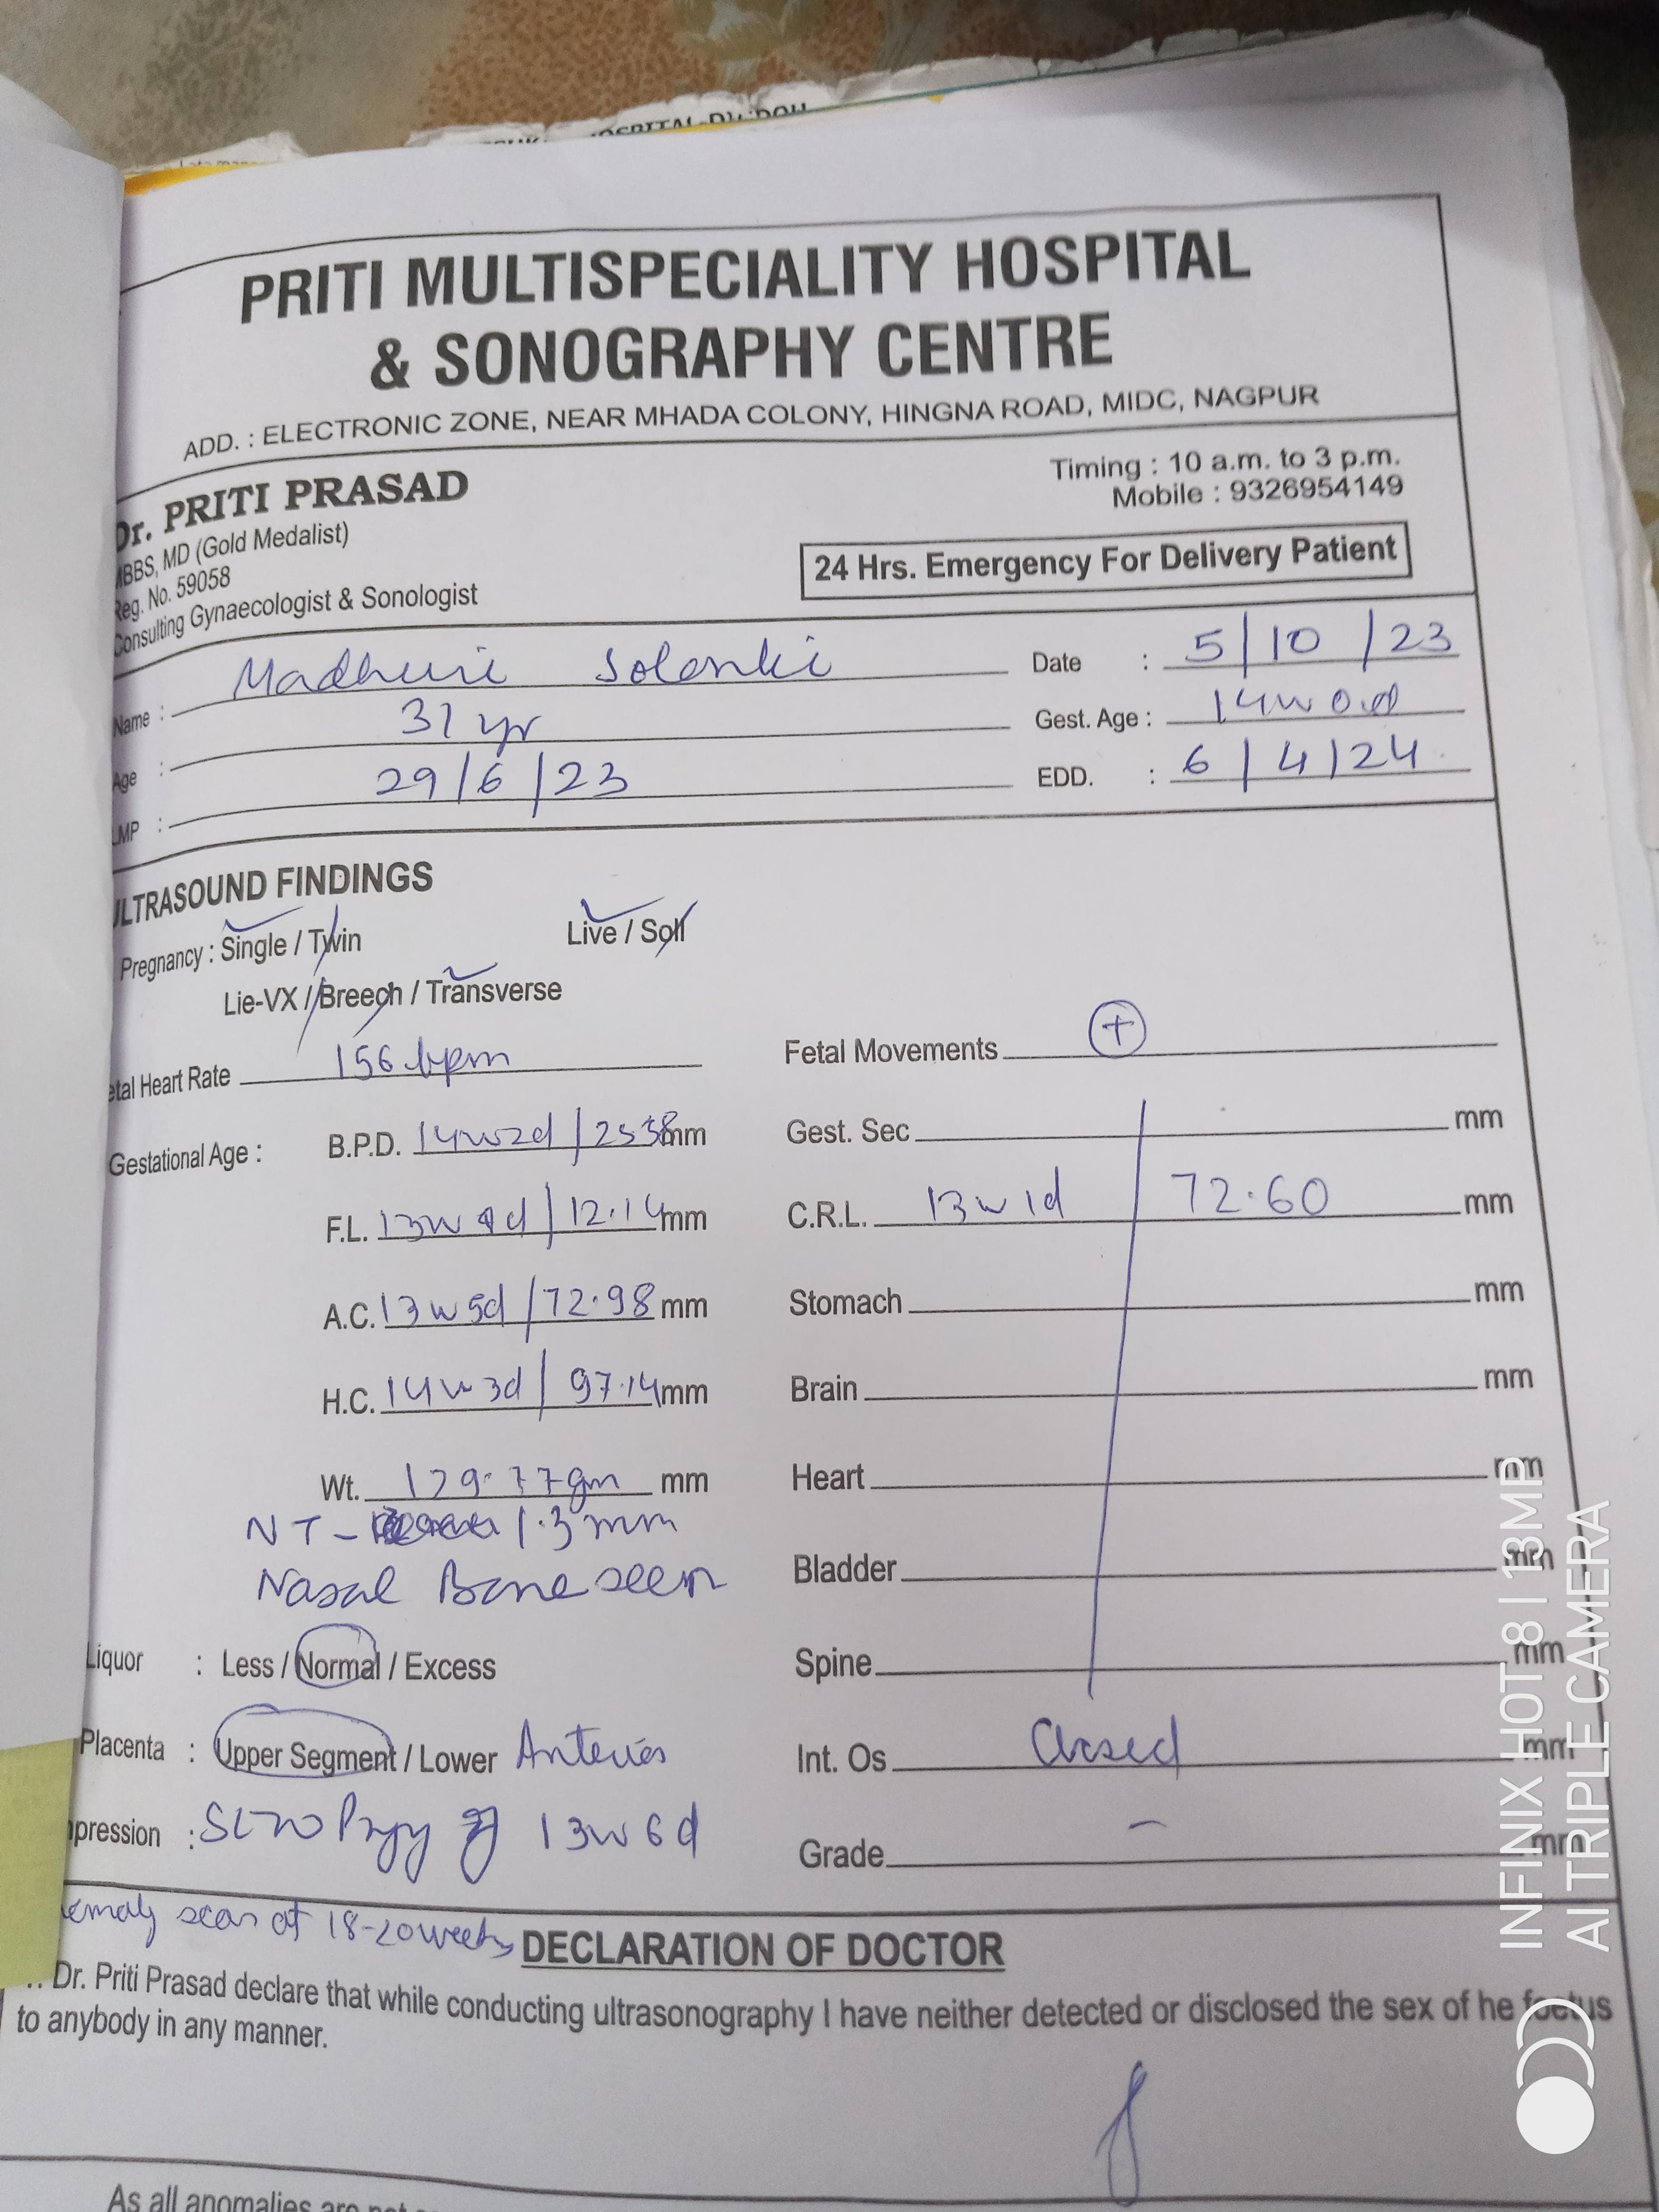 PRITI MULTISPECIALITY HOSPITAL
& SONOGRAPHY CENTRE
ADD. : ELECTRONIC ZONE, NEAR MHADA COLONY, HINGNA ROAD, MIDC, NAGPUR
Dr. PRITI PRASAD
MBBS, MD (Gold Medalist)
Reg. No. 59058
Consulting Gynaecologist & Sonologist
Timing : 10 a.m. to 3 p.m.
Mobile : 9326954149
24 Hrs. Emergency For Delivery Patient
Name : Madhuri Solanki
Date : 5/10/23
Age : 31 yr
Gest. Age : 14w0d
LMP : 29/6/23
EDD. : 6/4/24
ULTRASOUND FINDINGS
Pregnancy : Single / Twin Live / Soll
Lie-VX / Breech / Transverse
etal Heart Rate 156 bpm
Fetal Movements +
Gestational Age : B.P.D. 14w2d / mm
Gest. Sec mm
F.L. 13w d / 12.14 mm
C.R.L. 13w1d / 72.60 mm
A.C. 13w5d / 72.98 mm
Stomach mm
H.C. 14w3d / 97.14 mm
Brain mm
Wt. gm mm
Heart mm
NT - 1.3mm
Nasal Bone seen
Bladder mm
Liquor : Less / Normal / Excess
Spine mm
Placenta : Upper Segment / Lower Anterior
Int. Os Closed mm
pression : 13w6d
Grade - mm
scan at 18-20 weeks
DECLARATION OF DOCTOR
Dr. Priti Prasad declare that while conducting ultrasonography I have neither detected or disclosed the sex of he foetus
to anybody in any manner.
As all anomalies are not
INFINIX HOT 8 | 13MP
AI TRIPLE CAMERA